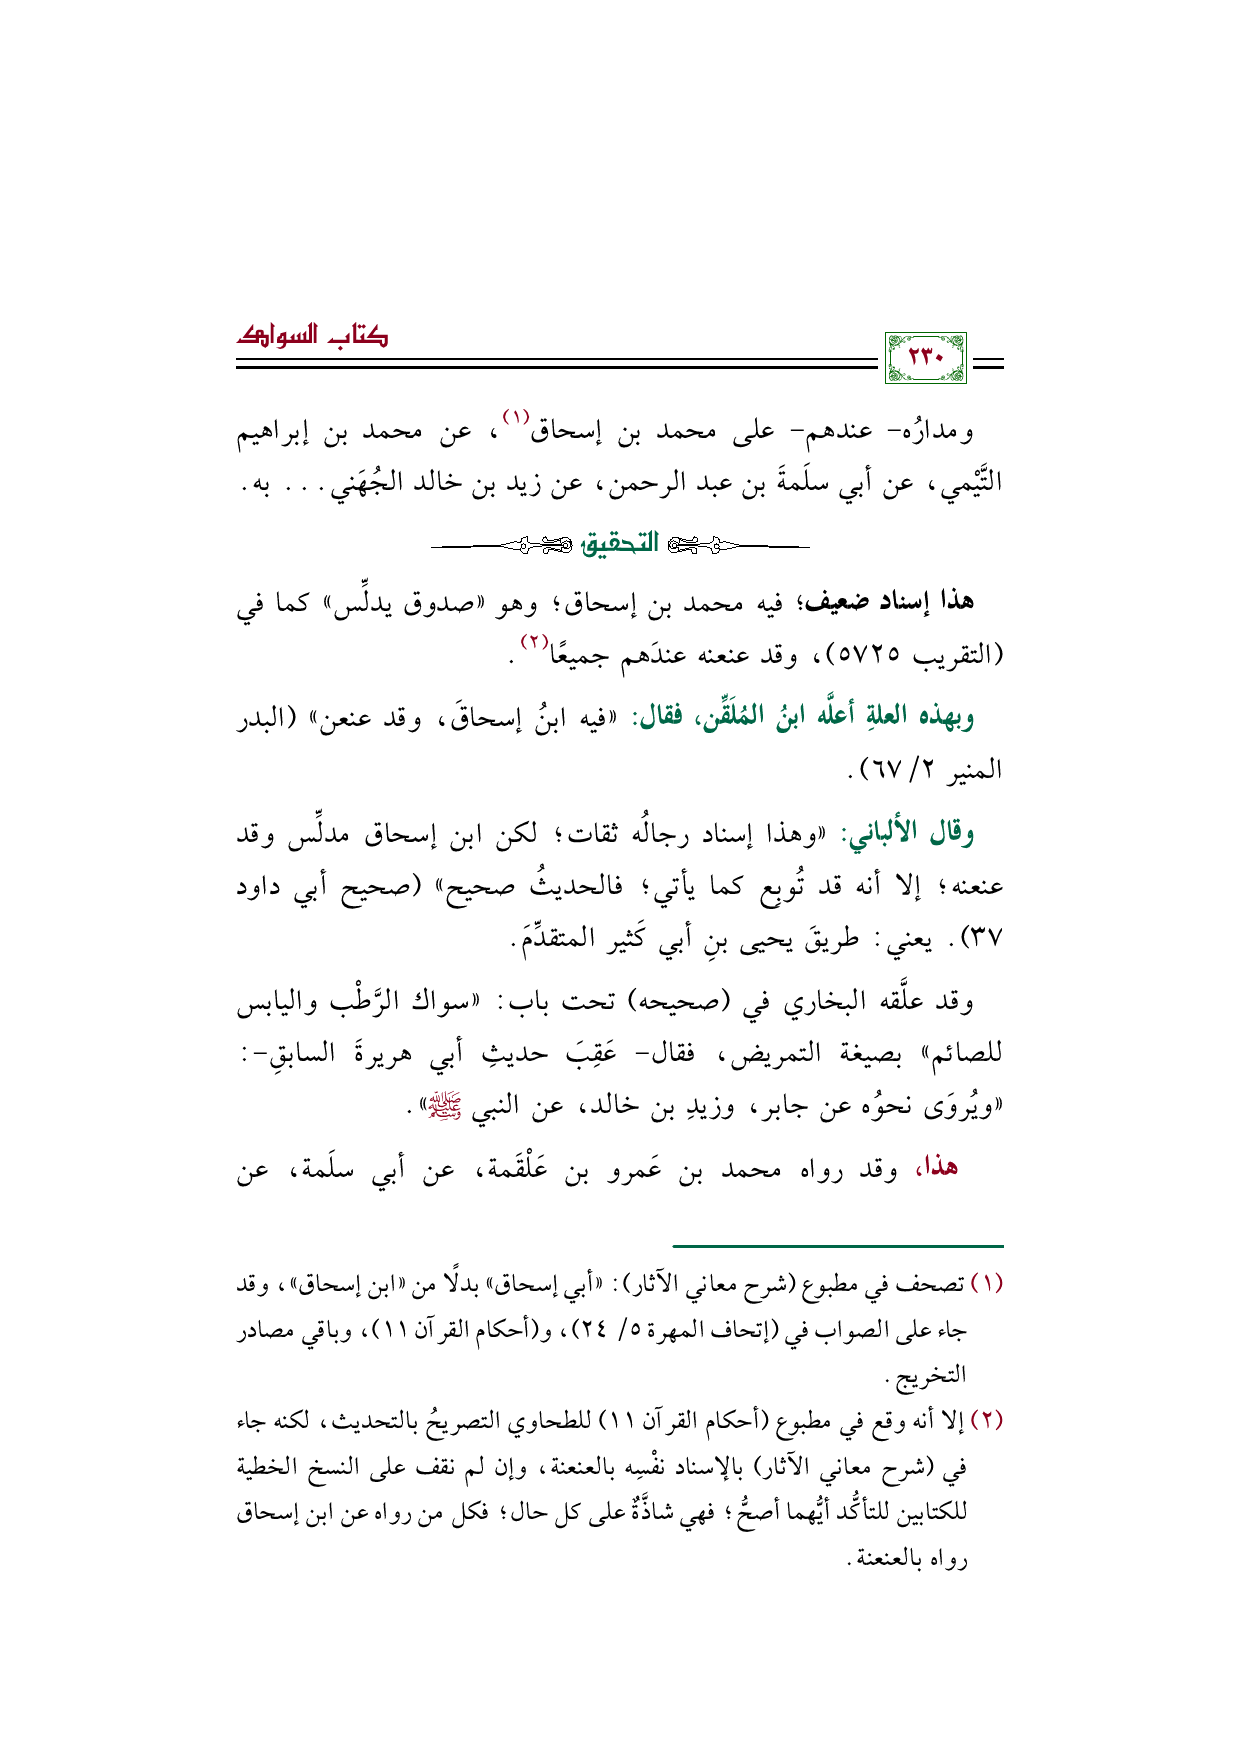 كتاب السواك
٢٣٠
ومدارُه- عندهم- على محمد بن إسحاق(١)، عن محمد بن إبراهيم
التَّيْمي، عن أبي سلَمةَ بن عبد الرحمن، عن زيد بن خالد الجُهَني... به.
التحقيق
هذا إسناد ضعيف؛ فيه محمد بن إسحاق؛ وهو «صدوق يدلِّس» كما في
(التقريب ٥٧٢٥)، وقد عنعنه عندَهم جميعًا(٢).
وبهذه العلةِ أعلَّه ابنُ المُلَقِّن، فقال: «فيه ابنُ إسحاقَ، وقد عنعن» (البدر
المنير ٢/ ٦٧).
وقال الألباني: «وهذا إسناد رجالُه ثقات؛ لكن ابن إسحاق مدلِّس وقد
عنعنه؛ إلا أنه قد تُوبِع كما يأتي؛ فالحديثُ صحيح» (صحيح أبي داود
٣٧). يعني: طريقَ يحيى بنِ أبي كَثير المتقدِّمَ.
وقد علَّقه البخاري في (صحيحه) تحت باب: «سواك الرَّطْب واليابس
للصائم» بصيغة التمريض، فقال- عَقِبَ حديثِ أبي هريرةَ السابقِ-:
«ويُروَى نحوُه عن جابر، وزيدِ بن خالد، عن النبي ﷺ».
هذا، وقد رواه محمد بن عَمرو بن عَلْقَمة، عن أبي سلَمة، عن
(١) تصحف في مطبوع (شرح معاني الآثار): «أبي إسحاق» بدلًا من «ابن إسحاق»، وقد
جاء على الصواب في (إتحاف المهرة ٥/ ٢٤)، و(أحكام القرآن ١١)، وباقي مصادر
التخريج.
(٢) إلا أنه وقع في مطبوع (أحكام القرآن ١١) للطحاوي التصريحُ بالتحديث، لكنه جاء
في (شرح معاني الآثار) بالإسناد نفْسِه بالعنعنة، وإن لم نقف على النسخ الخطية
للكتابين للتأكُّد أيُّهما أصحُّ؛ فهي شاذَّةٌ على كل حال؛ فكل من رواه عن ابن إسحاق
رواه بالعنعنة.